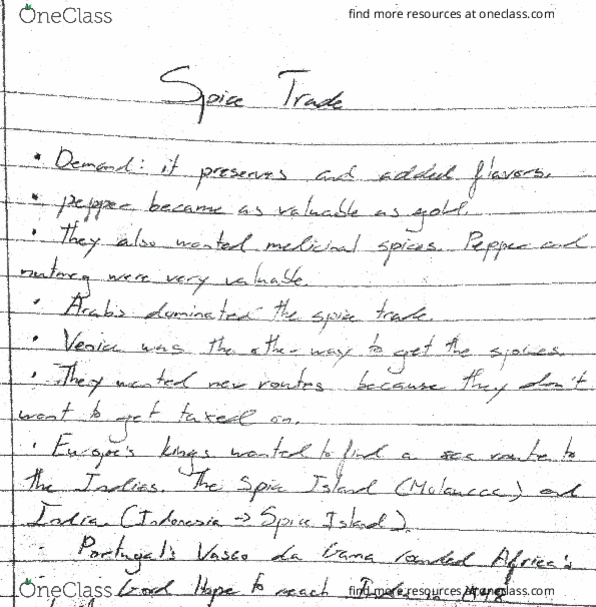 OneClass
find more resources at oneclass.com
Spice Trade
• Demand: it preserves and added flavors.
• pepper became as valuable as gold.
• They also wanted medicinal spices. Pepper and
nutmeg were very valuable.
• Arabs dominated the spice trade.
• Venice was the other way to get the spices.
• They wanted new routes because they don't
want to get taxed on.
• Europe's kings wanted to find a sea route to
the Indias. The Spice Island (Moluccas) and
India. (Indonesia → Spice Island).
• Portugal's Vasco da Gama rounded Africa's
Good Hope to reach
OneClass
find more resources at oneclass.com